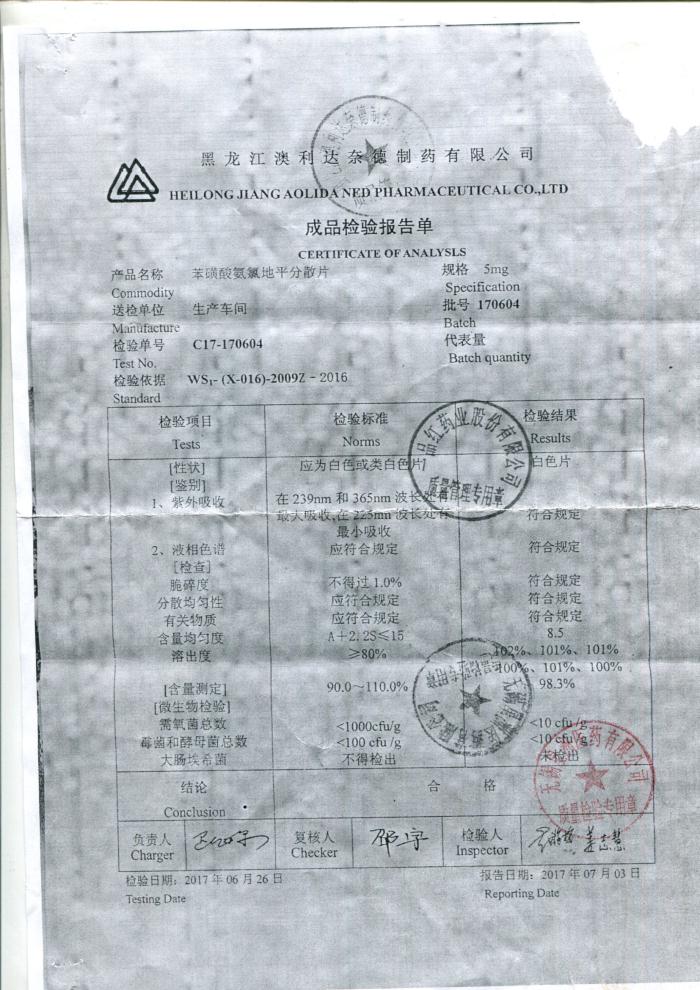 黑龙江澳利达奈德制药有限公司
HEILONG JIANG AOLIDA NED PHARMACEUTICAL CO.,LTD
成品检验报告单
CERTIFICATE OF ANALYSLS
产品名称 苯磺酸氨氯地平分散片 规格 5mg
Commodity Specification
送检单位 生产车间 批号 170604
Manufacture Batch
检验单号 C17-170604 代表量
Test No. Batch quantity
检验依据 WS₁- (X-016)-2009Z－2016
Standard
检验项目 检验标准 检验结果
Tests Norms Results
[性状] 应为白色或类白色片 白色片
[鉴别]
1、紫外吸收 在 239nm 和 365nm 波长处有
最大吸收,在 225nm 波长处有 符合规定
最小吸收
2、液相色谱 应符合规定 符合规定
[检查]
脆碎度 不得过 1.0% 符合规定
分散均匀性 应符合规定 符合规定
有关物质 应符合规定 符合规定
含量均匀度 A＋2.2S≤15 8.5
溶出度 ≥80% 102%、101%、101%
100%、101%、100%
[含量测定] 90.0～110.0% 98.3%
[微生物检验]
需氧菌总数 <1000cfu/g <10 cfu /g
霉菌和酵母菌总数 <100 cfu/g <10 cfu /g
大肠埃希菌 不得检出 未检出
结论 合 格
Conclusion
负责人 复核人 检验人
Charger Checker Inspector
检验日期：2017 年 06 月 26 日 报告日期：2017 年 07 月 03 日
Testing Date Reporting Date
品红药业股份有限公司
质量管理专用章
质量检验专用章